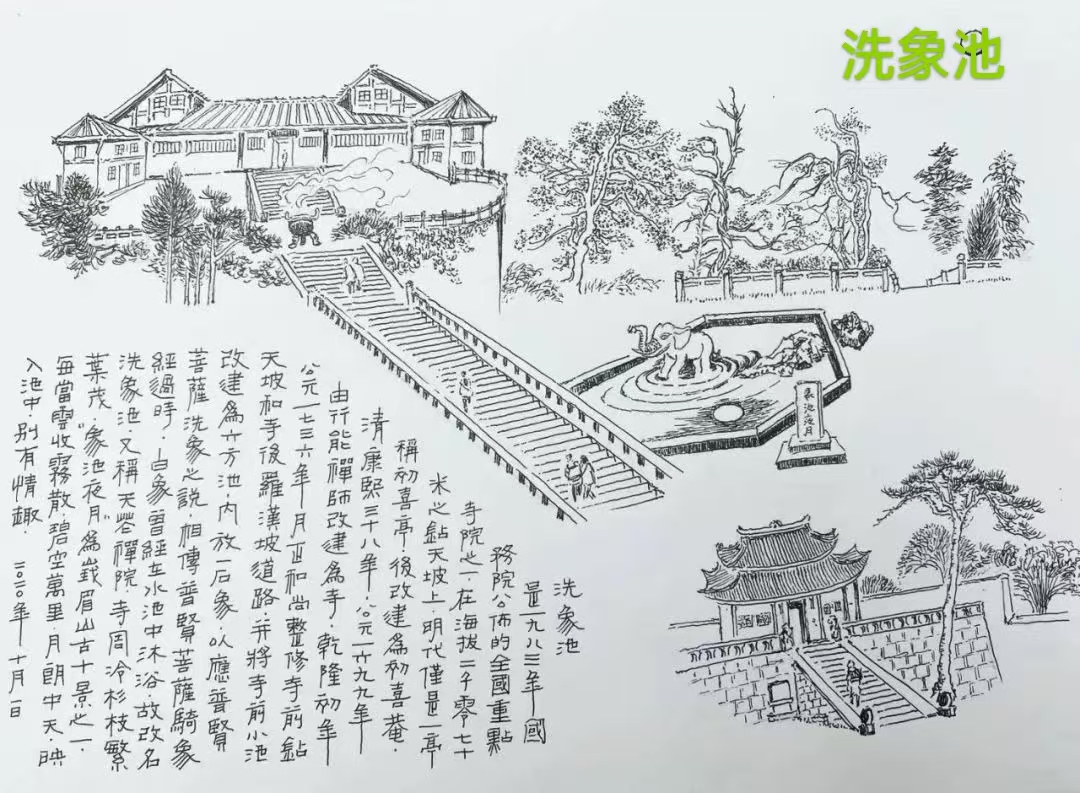 洗象池
象池夜月
洗象池
是一九八三年國
務院公佈的全國重點
寺院之一.在海拔二千零七十
米之鉆天坡上.明代僅是一亭
稱初喜亭.後改建爲初喜菴.
清康熙三十八年.公元一六九九年
由行能禪師改建爲寺.乾隆初年
公元一七三六年月正和尚整修寺前鉆
天坡和寺後羅漢坡道路.并將寺前小池
改建爲六方池.内放一石象.以應普賢
菩薩洗象之説.相傳普賢菩薩騎象
經過時.白象曾經在水池中沐浴故改名
洗象池又稱天花禪院.寺周冷杉枝繁
葉茂."象池夜月"爲峩眉山古十景之一.
每當雲收霧散.碧空萬里.月朗中天.映
入池中.别有情趣. 二〇二〇年十月一日